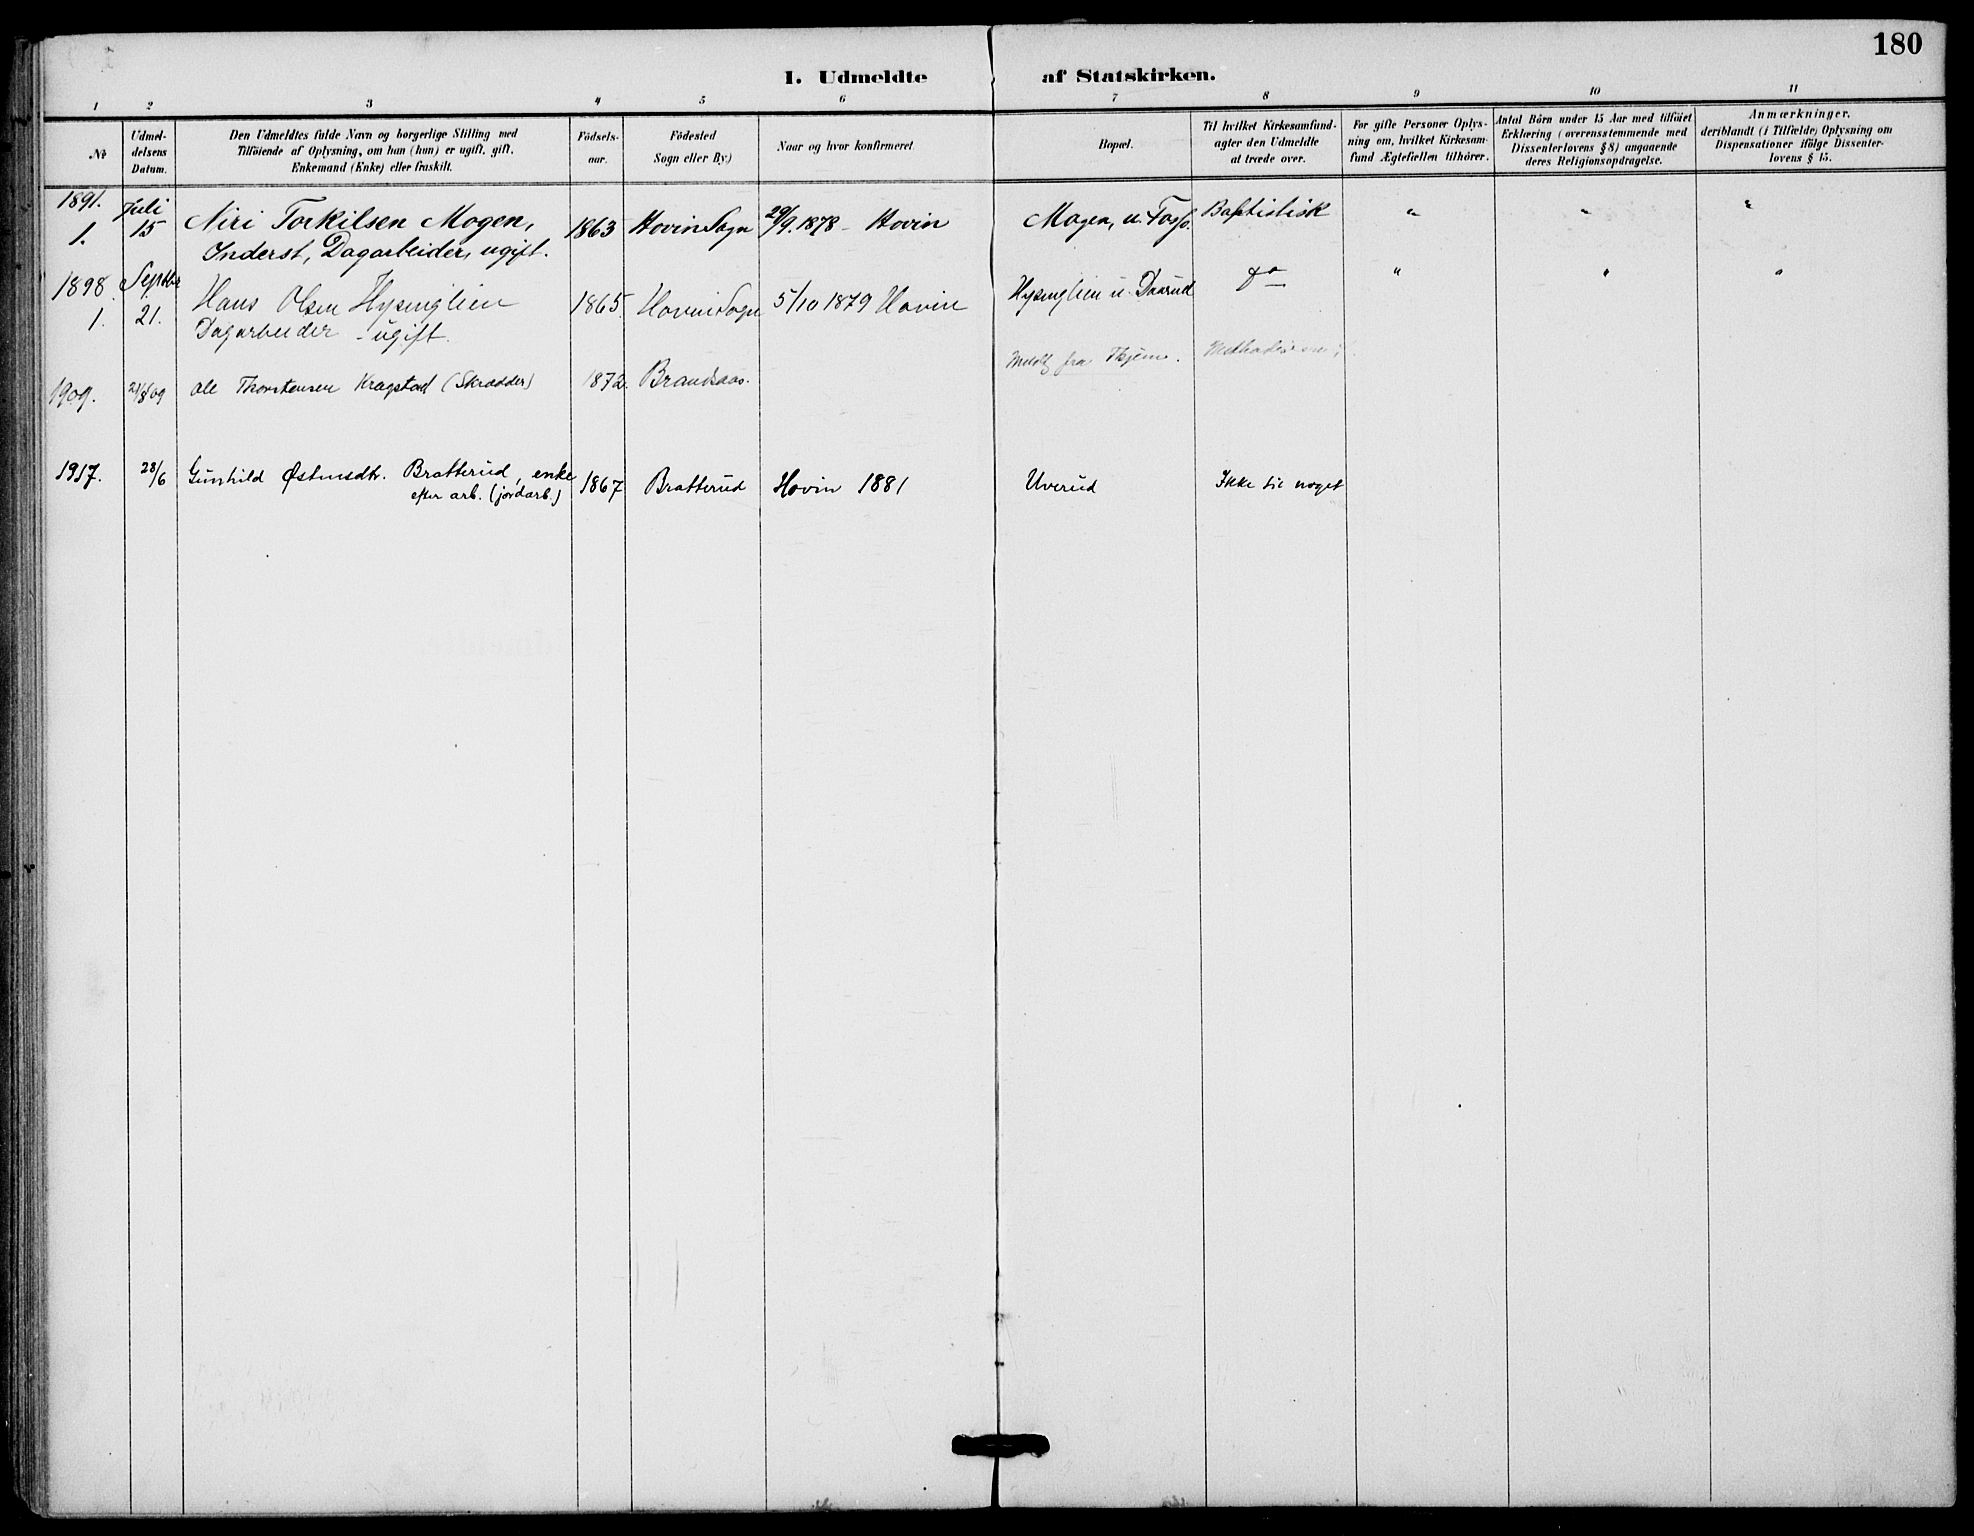 180
I. Udmeldte af Statskirken.
1 2 3 4 5 6 7 8 9 10 11
No
Udmel-
delsens
Datum.
Den Udmeldtes fulde Navn og borgerlige Stilling med
Tilföiende af Oplysning, om han (hun) er ugift, gift,
Enkemand (Enke) eller fraskilt.
Födsels-
aar.
Födested
Sogn eller By)
Naar og hvor konfirmeret
Bopæl.
Til hvilket Kirkesamfund-
agter den Udmeldte
at træde over.
For gifte Personer Oplys-
ning om, hvilket Kirkesam-
fund Ægtefællen tilhörer.
Antal Börn under 15 Aar med tilföiet
Erklæring (overensstemmende med
Dissenterlovens § 8) angaaende
deres Religionsopdragelse.
Anmærkninger,
deriblandt (i Tilfælde) Oplysning om
Dispensationer ifölge Dissenter-
lovens § 15.
1891.
1. Juli 15 Niri Torkilsen Mogen, 1863 Hovin Sogn 29/9.1878 - Hovin Mogen, u. Baptistisk " " "
Inderst, Dagarbeider, ugift.
1898. Septbr
1. 21. Hans Olsen Hysinglien 1865. Hovin Sogn 5/10 1879 Hovin Hysinglien u. Daarud do " " "
Dagarbeider - ugift.
1909. Ole Thorstensen Kragstad (Skrædder) 1872. Brandsaas. fra
1917. 28/6 Gunhild Østensdtr. Bratterud, enke 1867 Bratterud Hovin 1881 Uverud Ikke til noget
efter arb. (jordarb.)